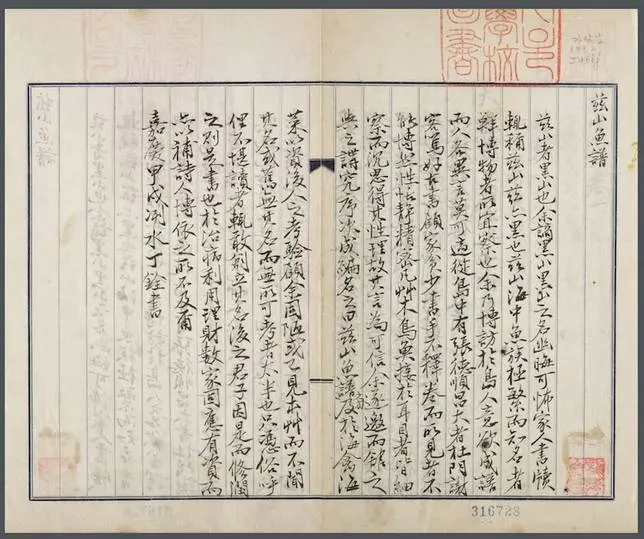 茲山魚譜
茲山者黑山也余謫黑山黑山之名幽晦可怖家人書牘
輒稱茲山茲亦黑也茲山海中魚族極繁而知名者
鮮博物者所宜察也余乃博訪於島人意欲成譜
而人各異言莫可適從島中有張德順昌大者杜門謝
客篤好古書顧家貧少書手不釋卷而所見者不
能博然性恬靜精密凡艸木鳥魚接於耳目者皆細
察而沉思得其性理故其言為可信余遂邀而館之
與之講究序次成編名之曰茲山魚譜旁及於海禽海
菜以資後人之考驗顧余固陋或已見本艸而不聞
其名或舊無其名而無所可考者太半也只憑俗呼
俚不堪讀者輒敢創立其名後之君子因是而修潤
之則是書也於治病利用理財數家固應有資而
亦以補詩人博依之所不及爾
嘉慶甲戌洌水丁銓書
316728